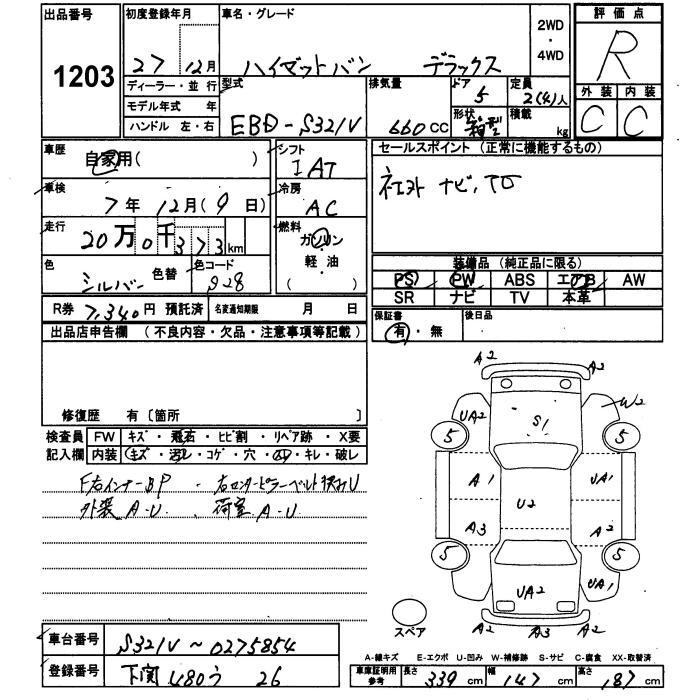 出品番号
1203
初度登録年月
27 12月
車名・グレード
ハイゼットバン デラックス
2WD
・
4WD
評価点
R
外装 内装
C C
ディーラー・並行
モデル年式 年
ハンドル 左・右
型式
EBD-S321V
排気量
660CC
ドア
5
形状
箱型
定員
2(4)人
積載
kg
車歴
自家用( )
車検
7年 12月(9日)
走行
20万0千373km
色
シルバー 色替
色コード
S28
シフト
I AT
冷房
AC
燃料
ガソリン
軽・油
( )
セールスポイント (正常に機能するもの)
ナビ,
装備品 (純正品に限る)
PS PW ABS エアB AW
SR ナビ TV 本革
R券 7,340円 預託済 名変通知期限 月 日
保証書
有・無
後日品
出品店申告欄 (不良内容・欠品・注意事項等記載)
修復歴 有〔箇所 〕
検査員
記入欄
FW キズ・飛石・ヒビ割・リペア跡・X要
内装 キズ・汚レ・コゲ・穴・凹・キレ・破レ
F右インナーBP ・右センターピラーベルト
外装 A-U 、荷室 A-U
A2 A2
UA2 S1 W2
5 5
A1 UA1
U2
A3 A2
5 5
UA2 UA1
A2 A3 A2
スペア
車台番号 S321V~0275854
登録番号 下関 480う 26
A-線キズ E-エクボ U-凹み W-補修跡 S-サビ C-腐食 XX-取替済
車庫証明用
参考
長さ 339cm 幅 147cm 高さ 187cm